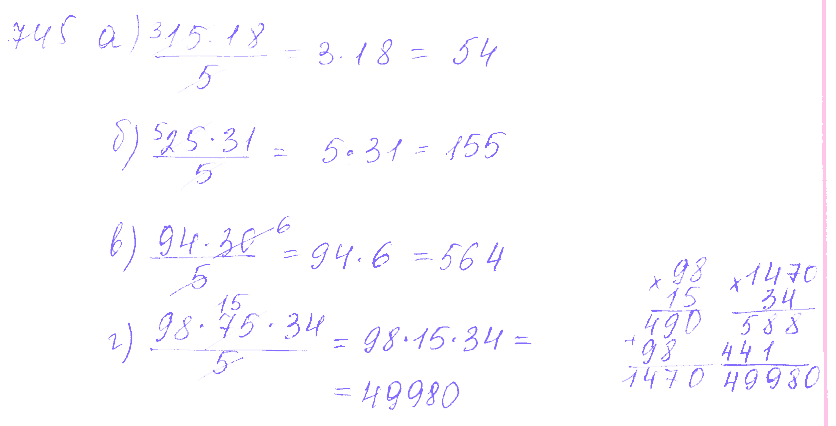 745 а) ³15·18/5 = 3·18 = 54
б) ⁵25·31/5 = 5·31 = 155
в) 94·30⁶/5 = 94·6 = 564
г) 98·75¹⁵·34/5 = 98·15·34 =
= 49980
×98
15
490
+98
1470
×1470
34
588
441
49980